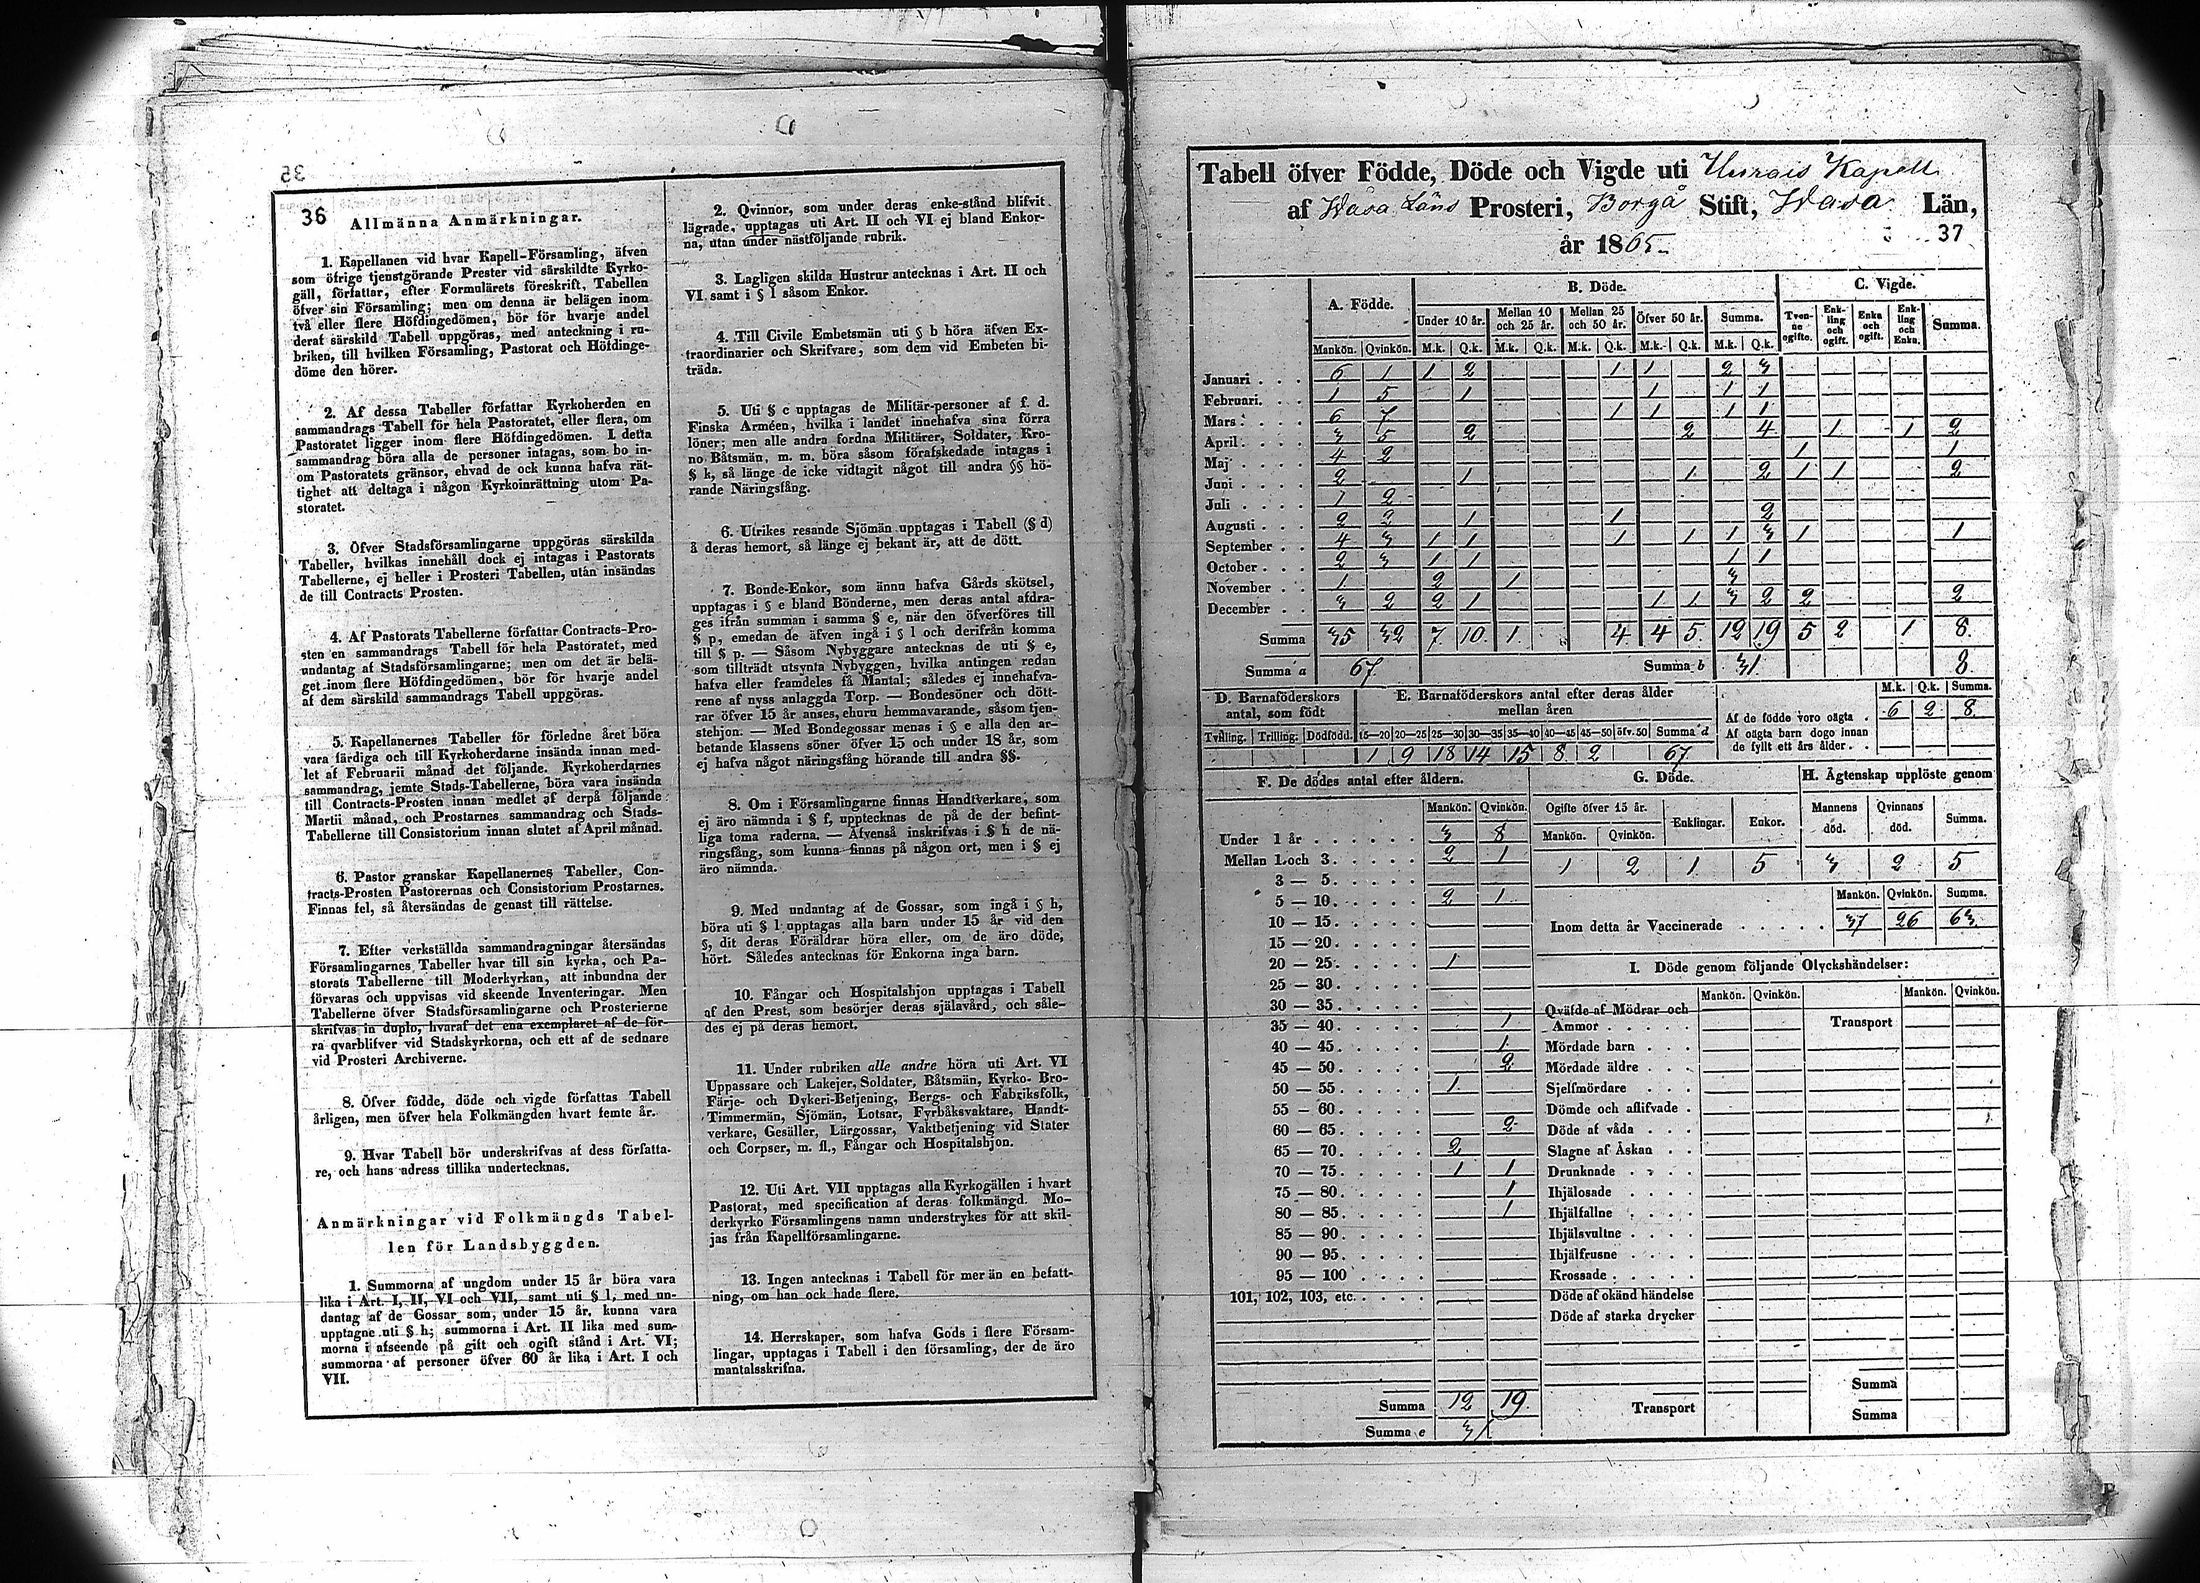 36
Allmänna Anmärkningar.
1. Kapellanen vid hvar Kapell-Församling, äfven
som öfrige tjenstgörande Prester vid särskildte Kyrko-
gäll, författar, efter Formulärets föreskrift, Tabellen
öfver sin Församling; men om denna är belägen inom
två eller flere Höfdingedömen, bör för hvarje andel
deraf särskild Tabell uppgöras, med anteckning i ru-
briken, till hvilken Församling, Pastorat och Höfdinge-
döme den hörer.
2. Af dessa Tabeller författar Kyrkoherden en
sammandrags Tabell för hela Pastoratet, eller flera, om
Pastoratet ligger inom flere Höfdingedömen. I detta
sammandrag böra alla de personer intagas, som bo in-
om Pastoratets gränsor, ehvad de ock kunna hafva rät-
tighet att deltaga i någon Kyrkoinrättning utom Pa-
storatet.
3. Öfver Stadsförsamlingarne uppgöras särskilda
Tabeller, hvilkas innehåll dock ej intagas i Pastorats
Tabellerne, ej heller i Prosteri Tabellen, utan insändas
de till Contracts Prosten.
4. Af Pastorats Tabellerne författar Contracts-Pro-
sten en sammandrags Tabell för hela Pastoratet, med
undantag af Stadsförsamlingarne; men om det är belä-
get inom flere Höfdingedömen, bör för hvarje andel
af dem särskild sammandrags Tabell uppgöras.
5. Kapellanernes Tabeller för förledne året böra
vara färdiga och till Kyrkoherdarne insända innan med-
let af Februarii månad det följande. Kyrkoherdarnes
sammandrag, jemte Stads-Tabellerne, böra vara insända
till Contracts-Prosten innan medlet af derpå följande
Martii månad, och Prostarnes sammandrag och Stads-
Tabellerne till Consistorium innan slutet af April månad.
6. Pastor granskar Kapellanernes Tabeller, Con-
tracts-Prosten Pastorernas och Consistorium Prostarnes.
Finnas fel, så återsändas de genast till rättelse.
7. Efter verkställda sammandragningar återsändas
Församlingarnes Tabeller hvar till sin kyrka, och Pa-
storats Tabellerne till Moderkyrkan, att inbundna der
förvaras och uppvisas vid skeende Inventeringar. Men
Tabellerne öfver Stadsförsamlingarne och Prosterierne
skrifvas in duplo, hvaraf det ena exemplaret af de för-
ra qvarblifver vid Stadskyrkorna, och ett af de sednare
vid Prosteri Archiverne.
8. Öfver födde, döde och vigde författas Tabell
årligen, men öfver hela Folkmängden hvart femte år.
9. Hvar Tabell bör underskrifvas af dess författa-
re, och hans adress tillika undertecknas.
Anmärkningar vid Folkmängds Tabel-
len för Landsbyggden.
1. Summorna af ungdom under 15 år böra vara
lika i Art. I, II, VI och VII, samt uti § l, med un-
dantag af de Gossar som, under 15 år, kunna vara
upptagne uti § h; summorna i Art. II lika med sum-
morna i afseende på gift och ogift stånd i Art. VI;
summorna af personer öfver 60 år lika i Art. I och
VII.
2. Qvinnor, som under deras enke-stånd blifvit
lägrade, upptagas uti Art. II och VI ej bland Enkor-
na, utan under nästföljande rubrik.
3. Lagligen skilda Hustrur antecknas i Art. II och
VI samt i § l såsom Enkor.
4. Till Civile Embetsmän uti § b höra äfven Ex-
traordinarier och Skrifvare, som dem vid Embeten bi-
träda.
5. Uti § c upptagas de Militär-personer af f. d.
Finska Arméen, hvilka i landet innehafva sina förra
löner; men alle andra fordna Militärer, Soldater, Kro-
no Båtsmän, m. m. böra såsom förafskedade intagas i
§ k, så länge de icke vidtagit något till andra §§ hö-
rande Näringsfång.
6. Utrikes resande Sjömän upptagas i Tabell (§ d)
å deras hemort, så länge ej bekant är, att de dött.
7. Bonde-Enkor, som ännu hafva Gårds skötsel,
upptagas i § e bland Bönderne, men deras antal afdra-
ges ifrån summan i samma § e, när den öfverföres till
§ p, emedan de äfven ingå i § l och derifrån komma
till § p. — Såsom Nybyggare antecknas de uti § e,
som tillträdt utsynta Nybyggen, hvilka antingen redan
hafva eller framdeles få Mantal; således ej innehafva-
rene af nyss anlaggda Torp. — Bondesöner och dött-
rar öfver 15 år anses, ehuru hemmavarande, såsom tjen-
stehjon. — Med Bondegossar menas i § e alla den ar-
betande klassens söner öfver 15 och under 18 år, som
ej hafva något näringsfång hörande till andra §§.
8. Om i Församlingarne finnas Handtverkare, som
ej äro nämnda i § f, upptecknas de på de der befint-
liga toma raderna. — Äfvenså inskrifvas i § h de nä-
ringsfång, som kunna finnas på någon ort, men i § ej
äro nämnda.
9. Med undantag af de Gossar, som ingå i § h,
böra uti § l upptagas alla barn under 15 år vid den
§, dit deras Föräldrar höra eller, om de äro döde,
hört. Således antecknas för Enkorna inga barn.
10. Fångar och Hospitalshjon upptagas i Tabell
af den Prest, som besörjer deras själavård, och såle-
des ej på deras hemort.
11. Under rubriken alle andre höra uti Art. VI
Uppassare och Lakejer, Soldater, Båtsmän, Kyrko- Bro-
Färje- och Dykeri-Betjening, Bergs- och Fabriksfolk,
Timmermän, Sjömän, Lotsar, Fyrbåksvaktare, Handt-
verkare, Gesäller, Lärgossar, Vaktbetjening vid Slater
och Corpser, m. fl., Fångar och Hospitalshjon.
12. Uti Art. VII upptagas alla Kyrkogällen i hvart
Pastorat, med specification af deras folkmängd. Mo-
derkyrko Församlingens namn understrykes för att skil-
jas från Kapellförsamlingarne.
13. Ingen antecknas i Tabell för mer än en befatt-
ning, om han ock hade flere.
14. Herrskaper, som hafva Gods i flere Försam-
lingar, upptagas i Tabell i den församling, der de äro
mantalsskrifna.
Tabell öfver Födde, Döde och Vigde uti Uurais Kapell
af Wasa Läns Prosteri, Borgå Stift, Wasa Län,
år 1865 37
A. Födde. B. Döde. C. Vigde.
Under 10 år. Mellan 10 och 25 år. Mellan 25 och 50 år. Öfver 50 år. Summa. Tvenne ogifte. Enkling och ogift. Enka och ogift. Enkling och Enka. Summa.
Mankön. Qvinkön. M.k. Q.k. M.k. Q.k. M.k. Q.k. M.k. Q.k. M.k. Q.k.
Januari 6 1 1 2 1 1 2 3
Februari 1 5 1 1 1 1
Mars 6 7 1 1 1 1
April 3 5 2 2 4 1 1 2
Maj 4 2 1 1
Juni 2 1 1 2 1 1 2
Juli 1 2
Augusti 2 2 1 1 2
September 4 3 1 1 1 1 1 3 1 1
October 2 3 1 1 1 1
November 1 2 1 3
December 3 2 2 1 1 1 3 2 2 2
Summa 35 32 7 10 1 4 4 5 12 19 5 2 1 8
Summa a 67 Summa b 31 8
D. Barnaföderskors antal, som födt
E. Barnaföderskors antal efter deras ålder mellan åren
M.k. Q.k. Summa.
Af de födde voro oägta 6 2 8
Af oägta barn dogo innan
de fyllt ett års ålder
Tvilling. Trilling. Dödfödd. 15—20 20—25 25—30 30—35 35—40 40—45 45—50 öfv. 50 Summa d
1 9 18 14 15 8 2 67
F. De dödes antal efter åldern.
Mankön. Qvinkön.
Under 1 år 3 8
Mellan 1 och 3 2 1
3 — 5
5 — 10 2 1
10 — 15
15 — 20
20 — 25 1
25 — 30
30 — 35
35 — 40 1
40 — 45 1
45 — 50 2
50 — 55 1
55 — 60
60 — 65 2
65 — 70 2
70 — 75 1 1
75 — 80 1
80 — 85 1
85 — 90
90 — 95
95 — 100
101, 102, 103, etc.
Summa 12 19
Summa e 31
G. Döde.
Ogifte öfver 15 år. Enklingar. Enkor.
Mankön. Qvinkön.
1 2 1 5
H. Ägtenskap upplöste genom
Mannens död. Qvinnans död. Summa.
3 2 5
Mankön. Qvinkön. Summa.
Inom detta år Vaccinerade 37 26 63
I. Döde genom följande Olyckshändelser:
Mankön. Qvinkön. Mankön. Qvinkön.
Qväfde af Mödrar och
Ammor Transport
Mördade barn
Mördade äldre
Sjelfmördare
Dömde och aflifvade
Döde af våda
Slagne af Åskan
Drunknade
Ihjälosade
Ihjälfallne
Ihjälsvultne
Ihjälfrusne
Krossade
Döde af okänd händelse
Döde af starka drycker
Summa
Transport Summa